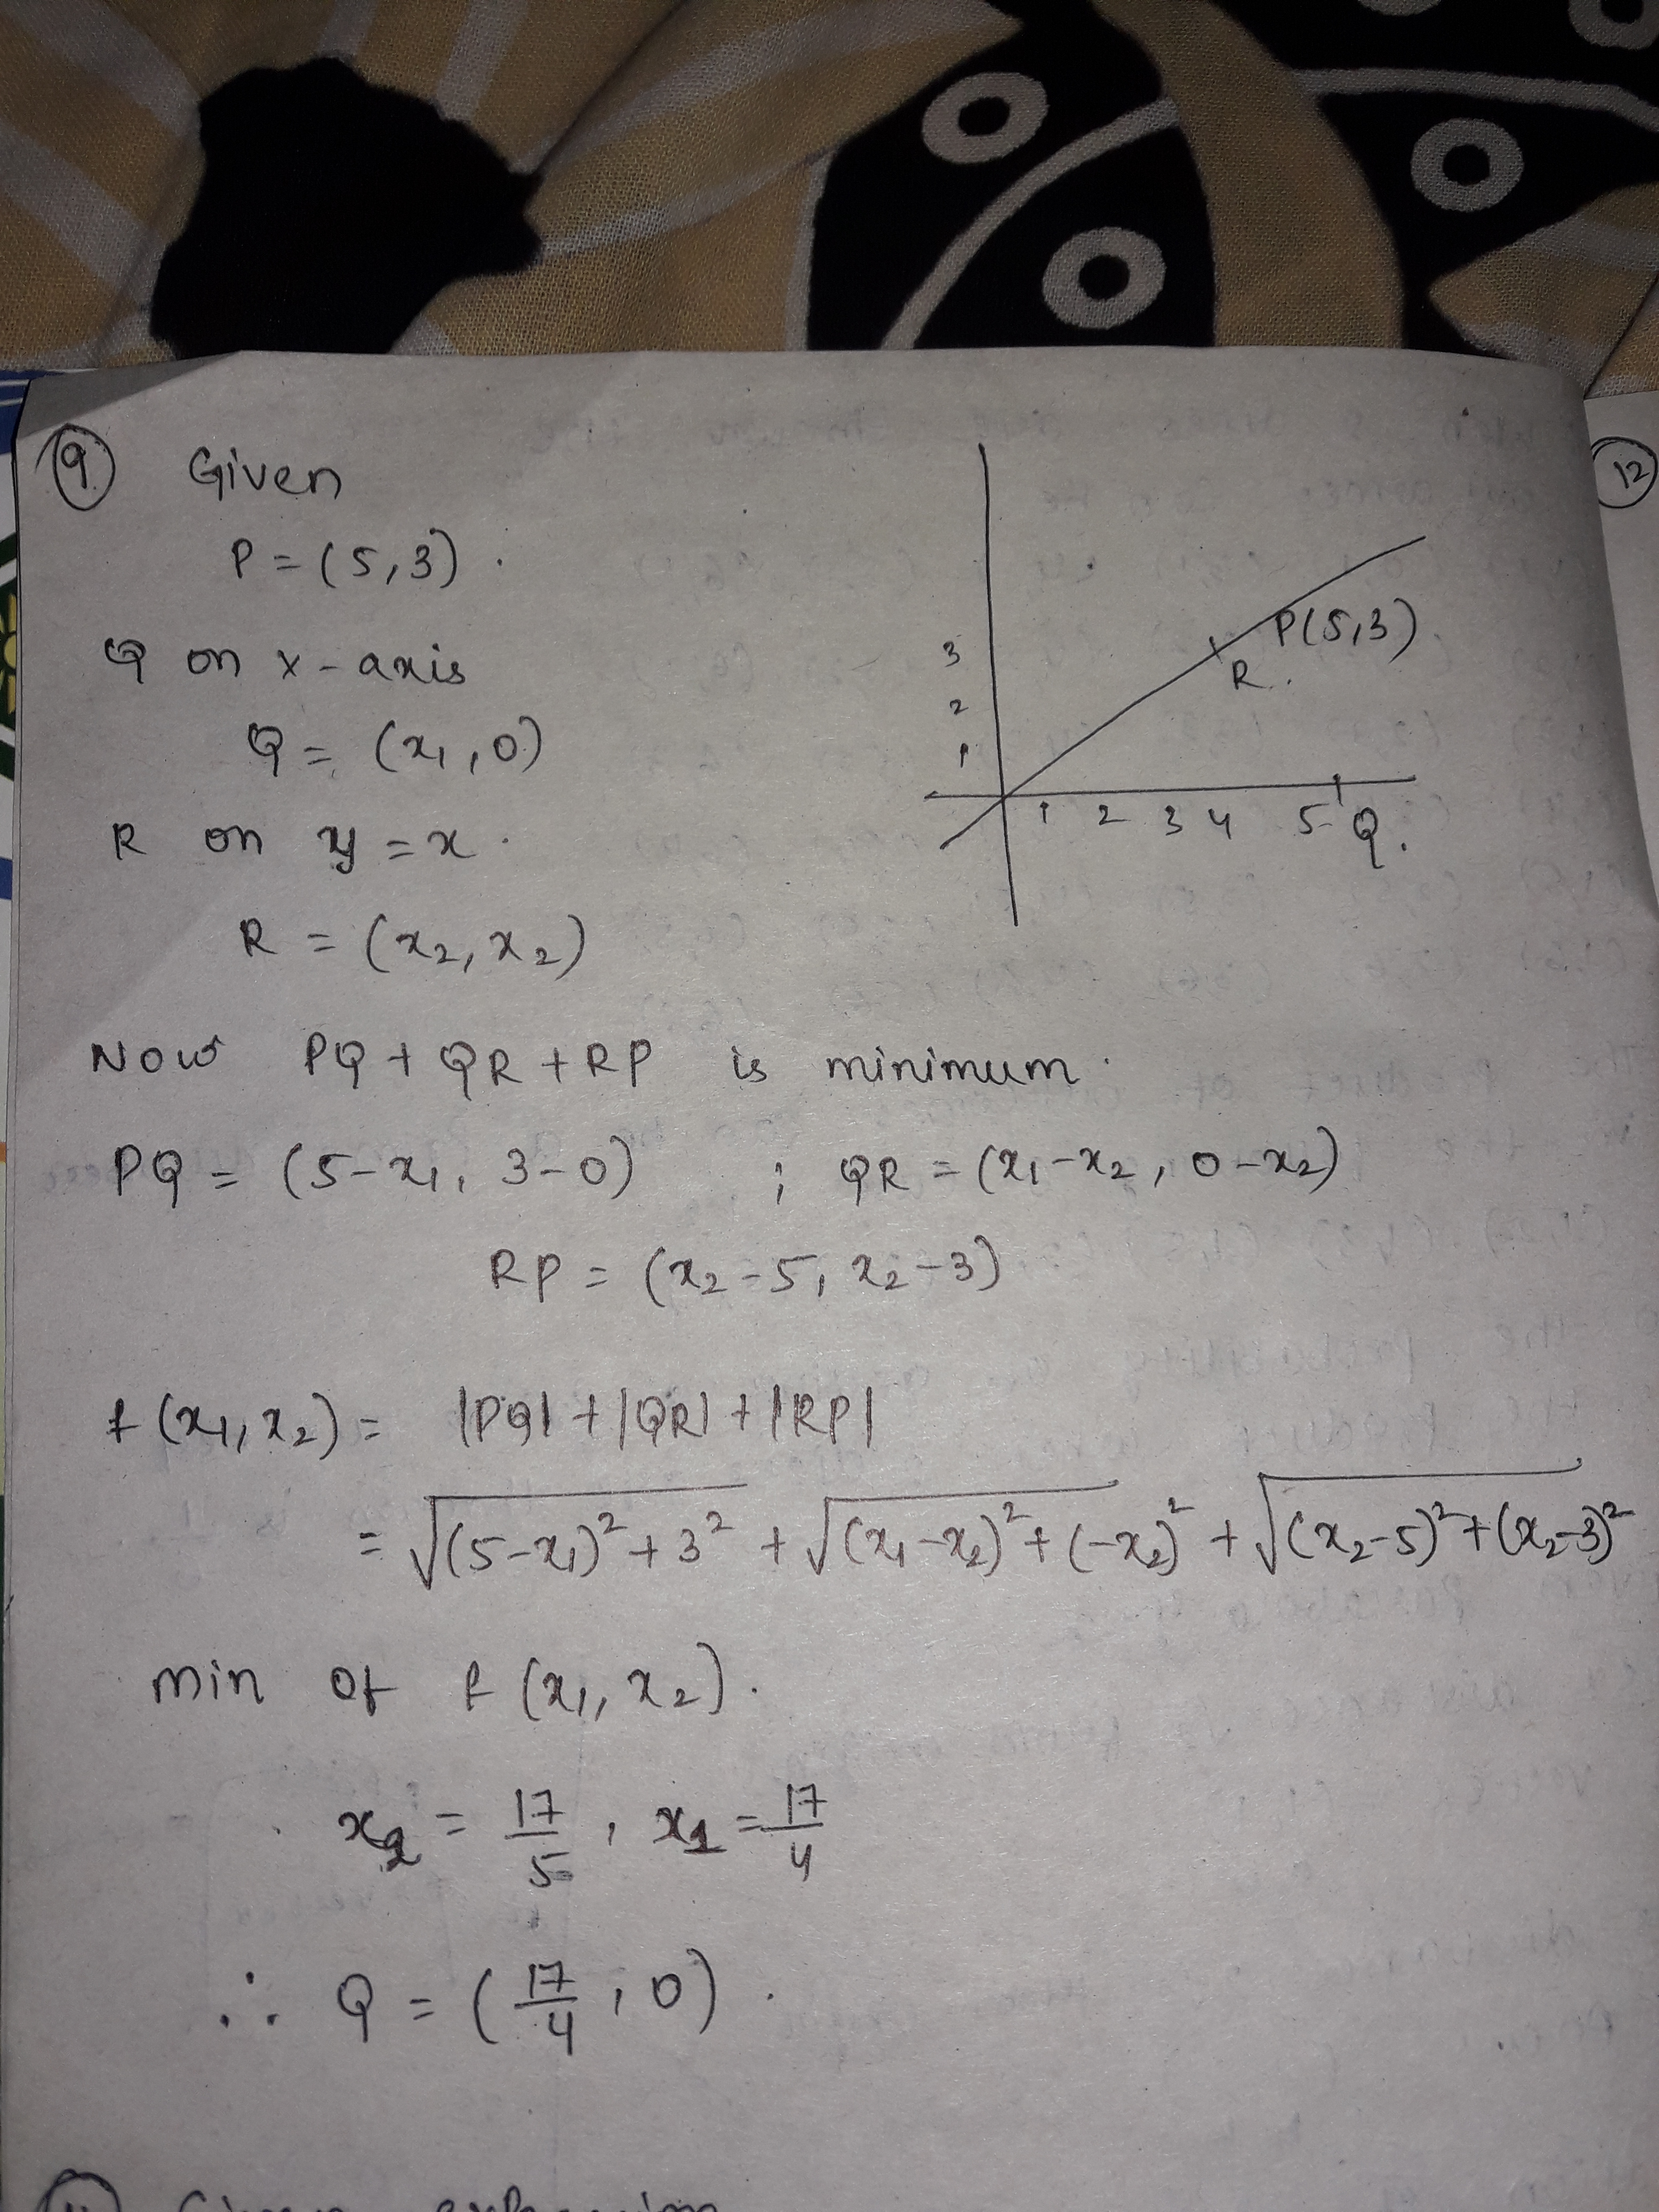 9. Given
P = (5,3).
Q on x-axis
Q = (x₁, 0)
R on y = x.
R = (x₂, x₂)
3
2
1
P(5,3)
R.
1 2 3 4 5 Q.
12
Now PQ + QR + RP is minimum.
PQ = (5-x₁, 3-0) ; QR = (x₁-x₂, 0-x₂)
RP = (x₂-5, x₂-3)
f(x₁,x₂) = |PQ| + |QR| + |RP|
= √((5-x₁)²+3²) + √((x₁-x₂)²+(-x₂)²) + √((x₂-5)²+(x₂-3)²)
min of f(x₁, x₂).
x₂ = 17/5, x₁ = 17/4
∴ Q = (17/4, 0).
Given